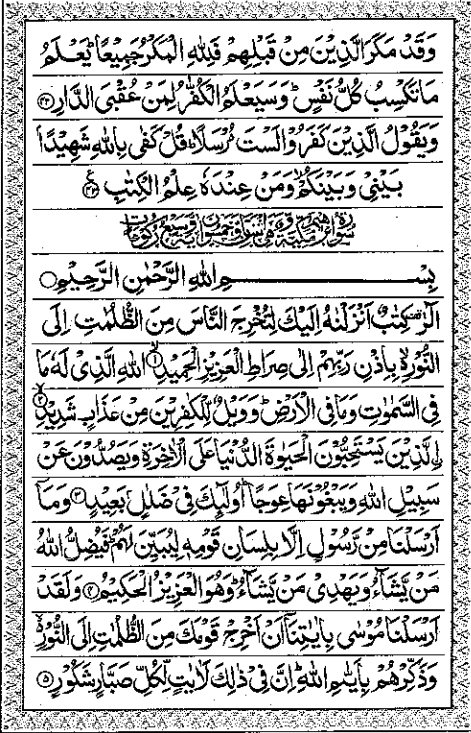 وَقَدْ مَكَرَ الَّذِيْنَ مِنْ قَبْلِهِمْ فَلِلّٰهِ الْمَكْرُ جَمِيْعًا ؕ يَعْلَمُ
مَا تَكْسِبُ كُلُّ نَفْسٍ ؕ وَسَيَعْلَمُ الْكُفّٰرُ لِمَنْ عُقْبَى الدَّارِ ﴿۴۲﴾
وَيَقُوْلُ الَّذِيْنَ كَفَرُوْا لَسْتَ مُرْسَلًا ؕ قُلْ كَفٰى بِاللّٰهِ شَهِيْدًۢا
بَيْنِيْ وَبَيْنَكُمْ ۙ وَمَنْ عِنْدَهٗ عِلْمُ الْكِتٰبِ ﴿۴۳﴾
بِسْمِ اللّٰهِ الرَّحْمٰنِ الرَّحِيْمِ
الٓرٰ ۫ كِتٰبٌ اَنْزَلْنٰهُ اِلَيْكَ لِتُخْرِجَ النَّاسَ مِنَ الظُّلُمٰتِ اِلَى
النُّوْرِ ۙ بِاِذْنِ رَبِّهِمْ اِلٰى صِرَاطِ الْعَزِيْزِ الْحَمِيْدِ ﴿۱﴾ اللّٰهِ الَّذِيْ لَهٗ مَا
فِي السَّمٰوٰتِ وَمَا فِي الْاَرْضِ ؕ وَوَيْلٌ لِّلْكٰفِرِيْنَ مِنْ عَذَابٍ شَدِيْدٍ ﴿۲﴾
ۙالَّذِيْنَ يَسْتَحِبُّوْنَ الْحَيٰوةَ الدُّنْيَا عَلَى الْاٰخِرَةِ وَيَصُدُّوْنَ عَنْ
سَبِيْلِ اللّٰهِ وَيَبْغُوْنَهَا عِوَجًا ؕ اُولٰٓئِكَ فِيْ ضَلٰلٍۢ بَعِيْدٍ ﴿۳﴾ وَمَآ
اَرْسَلْنَا مِنْ رَّسُوْلٍ اِلَّا بِلِسَانِ قَوْمِهٖ لِيُبَيِّنَ لَهُمْ ؕ فَيُضِلُّ اللّٰهُ
مَنْ يَّشَآءُ وَيَهْدِيْ مَنْ يَّشَآءُ ؕ وَهُوَ الْعَزِيْزُ الْحَكِيْمُ ﴿۴﴾ وَلَقَدْ
اَرْسَلْنَا مُوْسٰى بِاٰيٰتِنَآ اَنْ اَخْرِجْ قَوْمَكَ مِنَ الظُّلُمٰتِ اِلَى النُّوْرِ ۙ
وَذَكِّرْهُمْ بِاَيّٰىمِ اللّٰهِ ؕ اِنَّ فِيْ ذٰلِكَ لَاٰيٰتٍ لِّكُلِّ صَبَّارٍ شَكُوْرٍ ﴿۵﴾